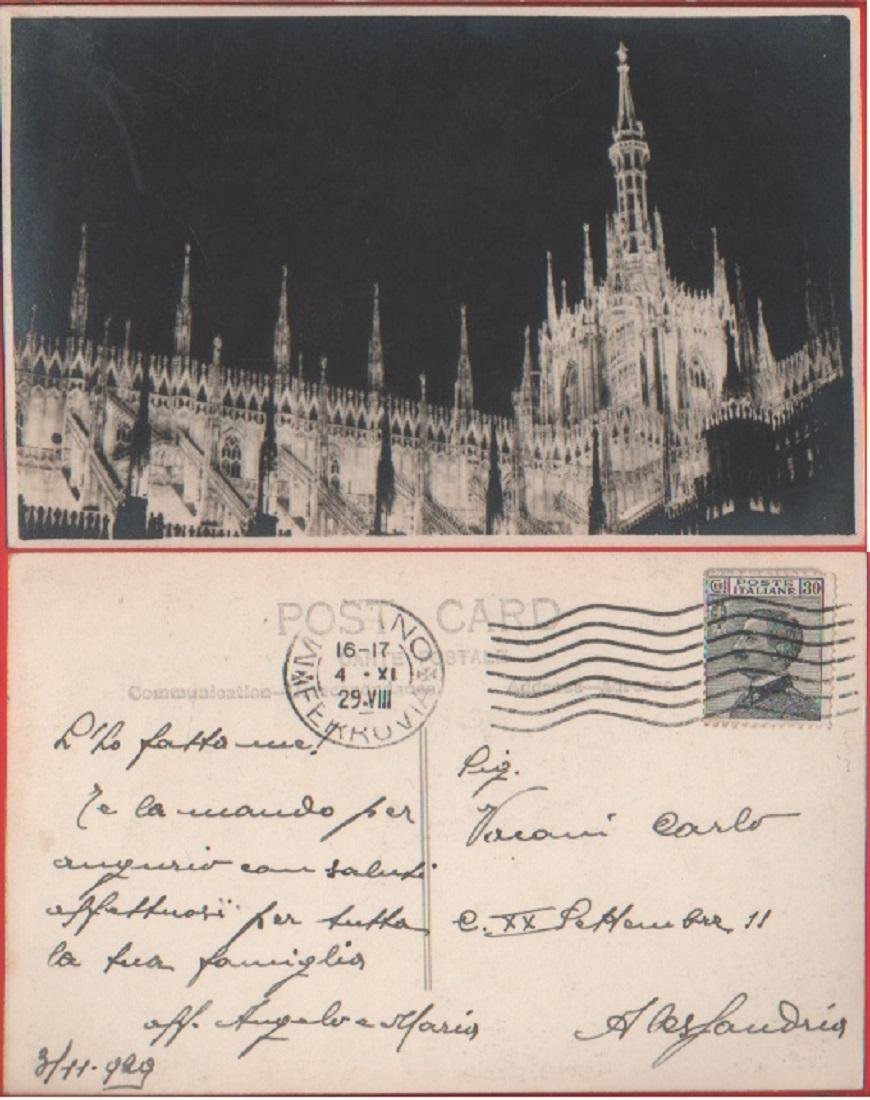 POST CARD
CARTE POSTALE
Communication
Address—Adresse
M NO
16-17
4 · XI
29·VIII
FERROVIA
POSTE ITALIANE 30
L'ho fatta me!
Te la mando per
augurio con saluti
affettuosi per tutta
la tua famiglia
aff. Angelo e Maria
3/11·929
Sig.
Vacani Carlo
C. XX Settembre 11
Alessandria